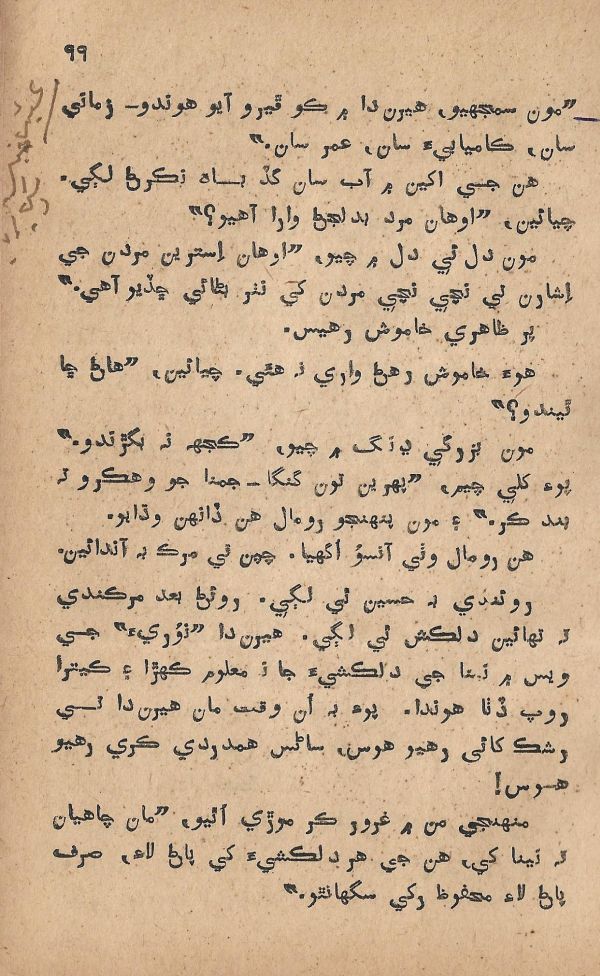 ۹۹
”مون سمجھيو، هيرن دا ۾ ڪو ڦيرو آيو هوندو– زماني
سان، ڪاميابيءَ سان، عمر سان.“
هن جي اکين ۾ آب سان گڏ باهه نڪرڻ لڳي.
چيائين، ”اوهان مرد بدلجڻ وارا آهيو؟“
مون دل ئي دل ۾ چيو، ”اوهان اِسترين مردن جي
اِشارن تي نچي نچي مردن کي نٽر بڻائي ڇڏيو آهي.“
پر ظاهري خاموش رهيس.
هوءَ خاموش رهڻ واري نہ هئي. چيائين، ”هاڻ ڇا
ٿيندو؟“
مون بزرگي ڍنگ ۾ چيو، ”ڪجهہ نہ بگڙندو.“
پوءِ کلي چيم، ”پهرين تون گنگا– جمنا جو وهڪرو تہ
بند ڪر.“ ۽ مون پنهنجو رومال هن ڏانهن وڌايو.
هن رومال وٺي آنسوُ اُگهيا. چپن تي مرڪ بہ آندائين.
روئندي بہ حسين ٿي لڳي. روئڻ بعد مرڪندي
تہ تهائين دلڪش ٿي لڳي. هيرن دا ”نوُريءَ“ جي
ويس ۾ نينا جي دلڪشيءَ جا نہ معلوم ڪهڙا ۽ ڪيترا
روپ ڏٺا هوندا. پوءِ بہ اُن وقت مان هيرن دا تي
رشڪ کائي رهيو هوس، ساڻس همدردي ڪري رهيو
هوس!
منهنجي من ۾ غرور ڪر موڙي اُٿيو، ”مان چاهيان
تہ نينا کي، هن جي هر دلڪشيءَ کي پاڻ لاءِ، صرف
پاڻ لاءِ محفوظ رکي سگهانٿو.“